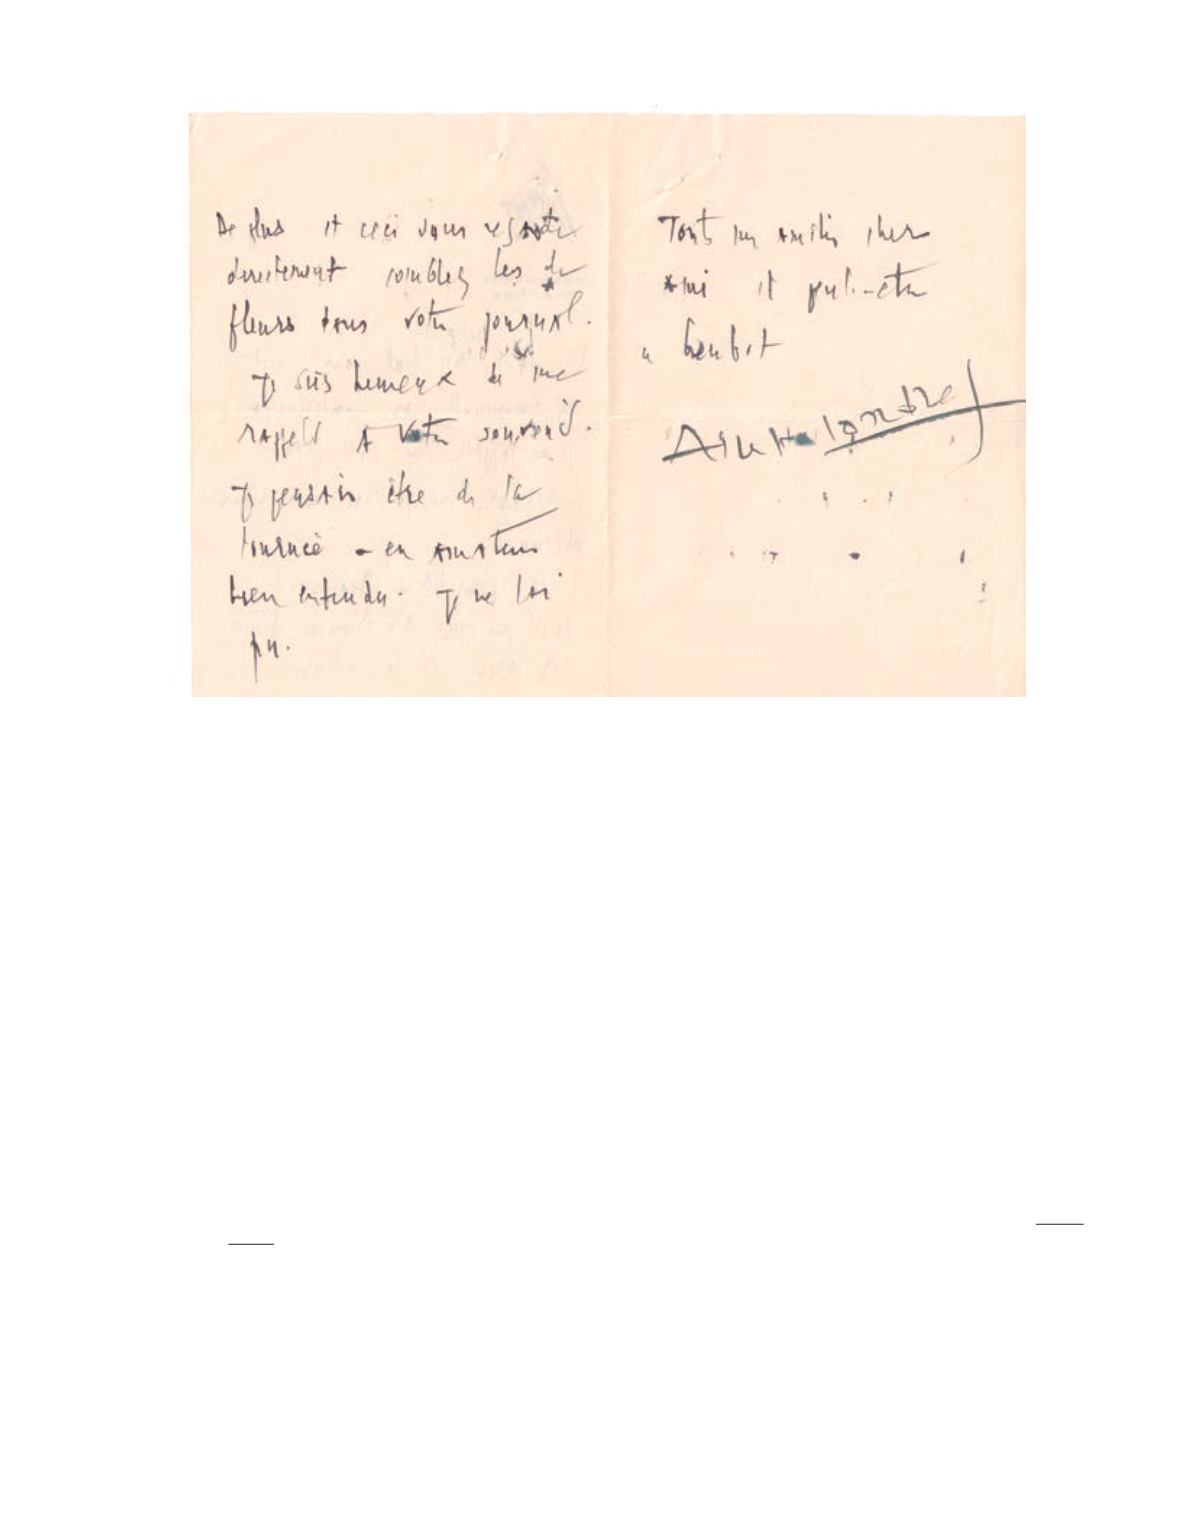 De plus et ceci vous regarde
directement comblez les de
fleurs dans votre journal.
Je suis heureux de me
rappeler à votre souvenir.
Je pensais être de la
tournée - en amateur
bien entendu. Je ne l'ai
pu.
Toutes mes amitiés cher
ami et peut-être
à bientôt